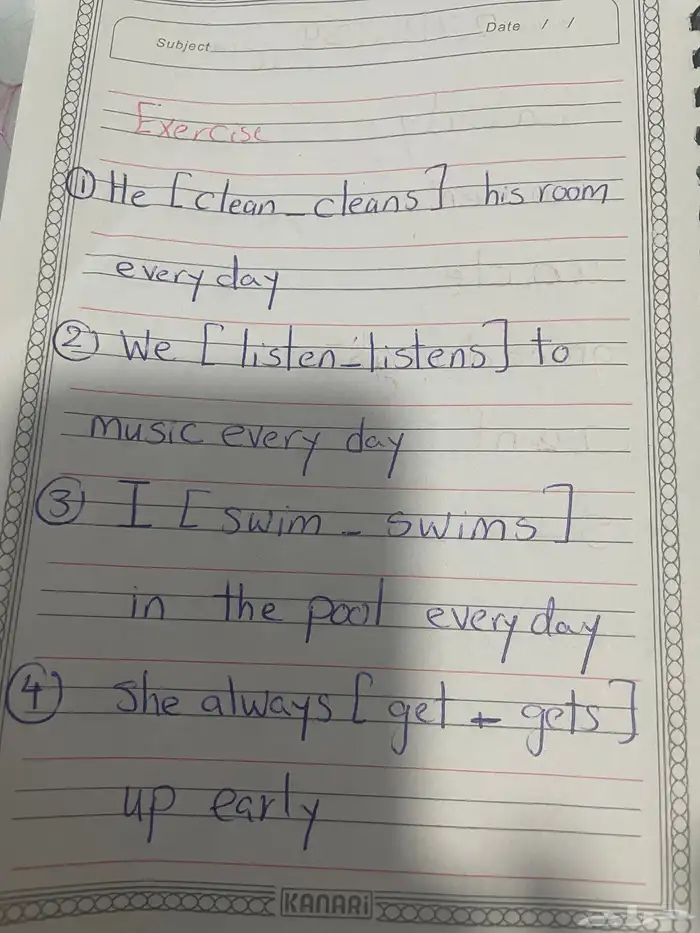 Subject
Date / /
Exercise
① He [clean_cleans] his room
every day
② We [listen_listens] to
music every day
③ I [swim_swims]
in the pool every day
④ She always [get_gets]
up early
KANARi